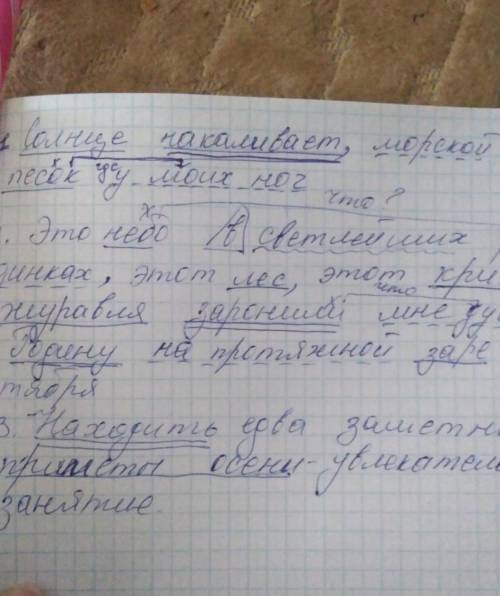 1 Солнце накаливает, морской
песок где у моих ног
что?
х
. Это небо в светлейших
динках, этот лес, этот кри
что
журавля заронили мне ду
Родину на протяжной заре
тября
3. Находить едва заметн
приметы осени-увлекатель
занятие.